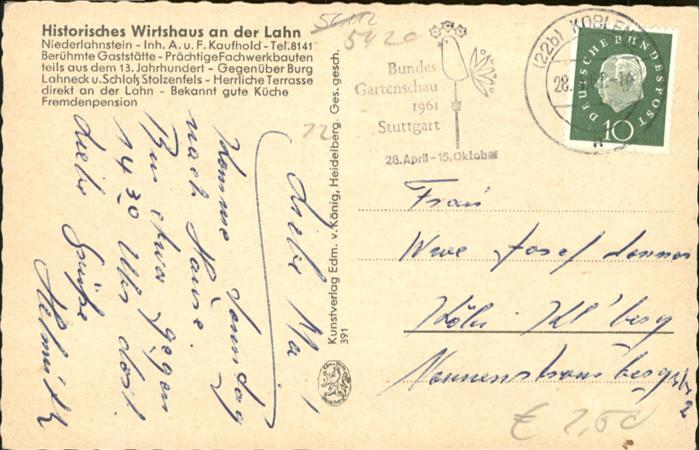 Historisches Wirtshaus an der Lahn
Niederlahnstein - Inh. A. u. F. Kaufhold - Tel. 8141
Berühmte Gaststätte - Prächtige Fachwerkbauten
teils aus dem 13. Jahrhundert - Gegenüber Burg
Lahneck u. Schloß Stolzenfels - Herrliche Terrasse
direkt an der Lahn - Bekannt gute Küche
Fremdenpension
5420
12
Liebe Ma!
Komme Sonntag
nach Hause.
Bin etwa gegen
14 30 Uhr dort
Liebe Grüße
Kunstverlag Edm. v. König, Heidelberg. Ges. gesch.
391
Bundes
Gartenschau
1961
Stuttgart
28. April - 15. Oktob
(22b) KOBLE
28.
DEUTSCHE BUNDESPOST
10
Frau
Wwe Josef
Köln-Kl'berg
€ 2,50